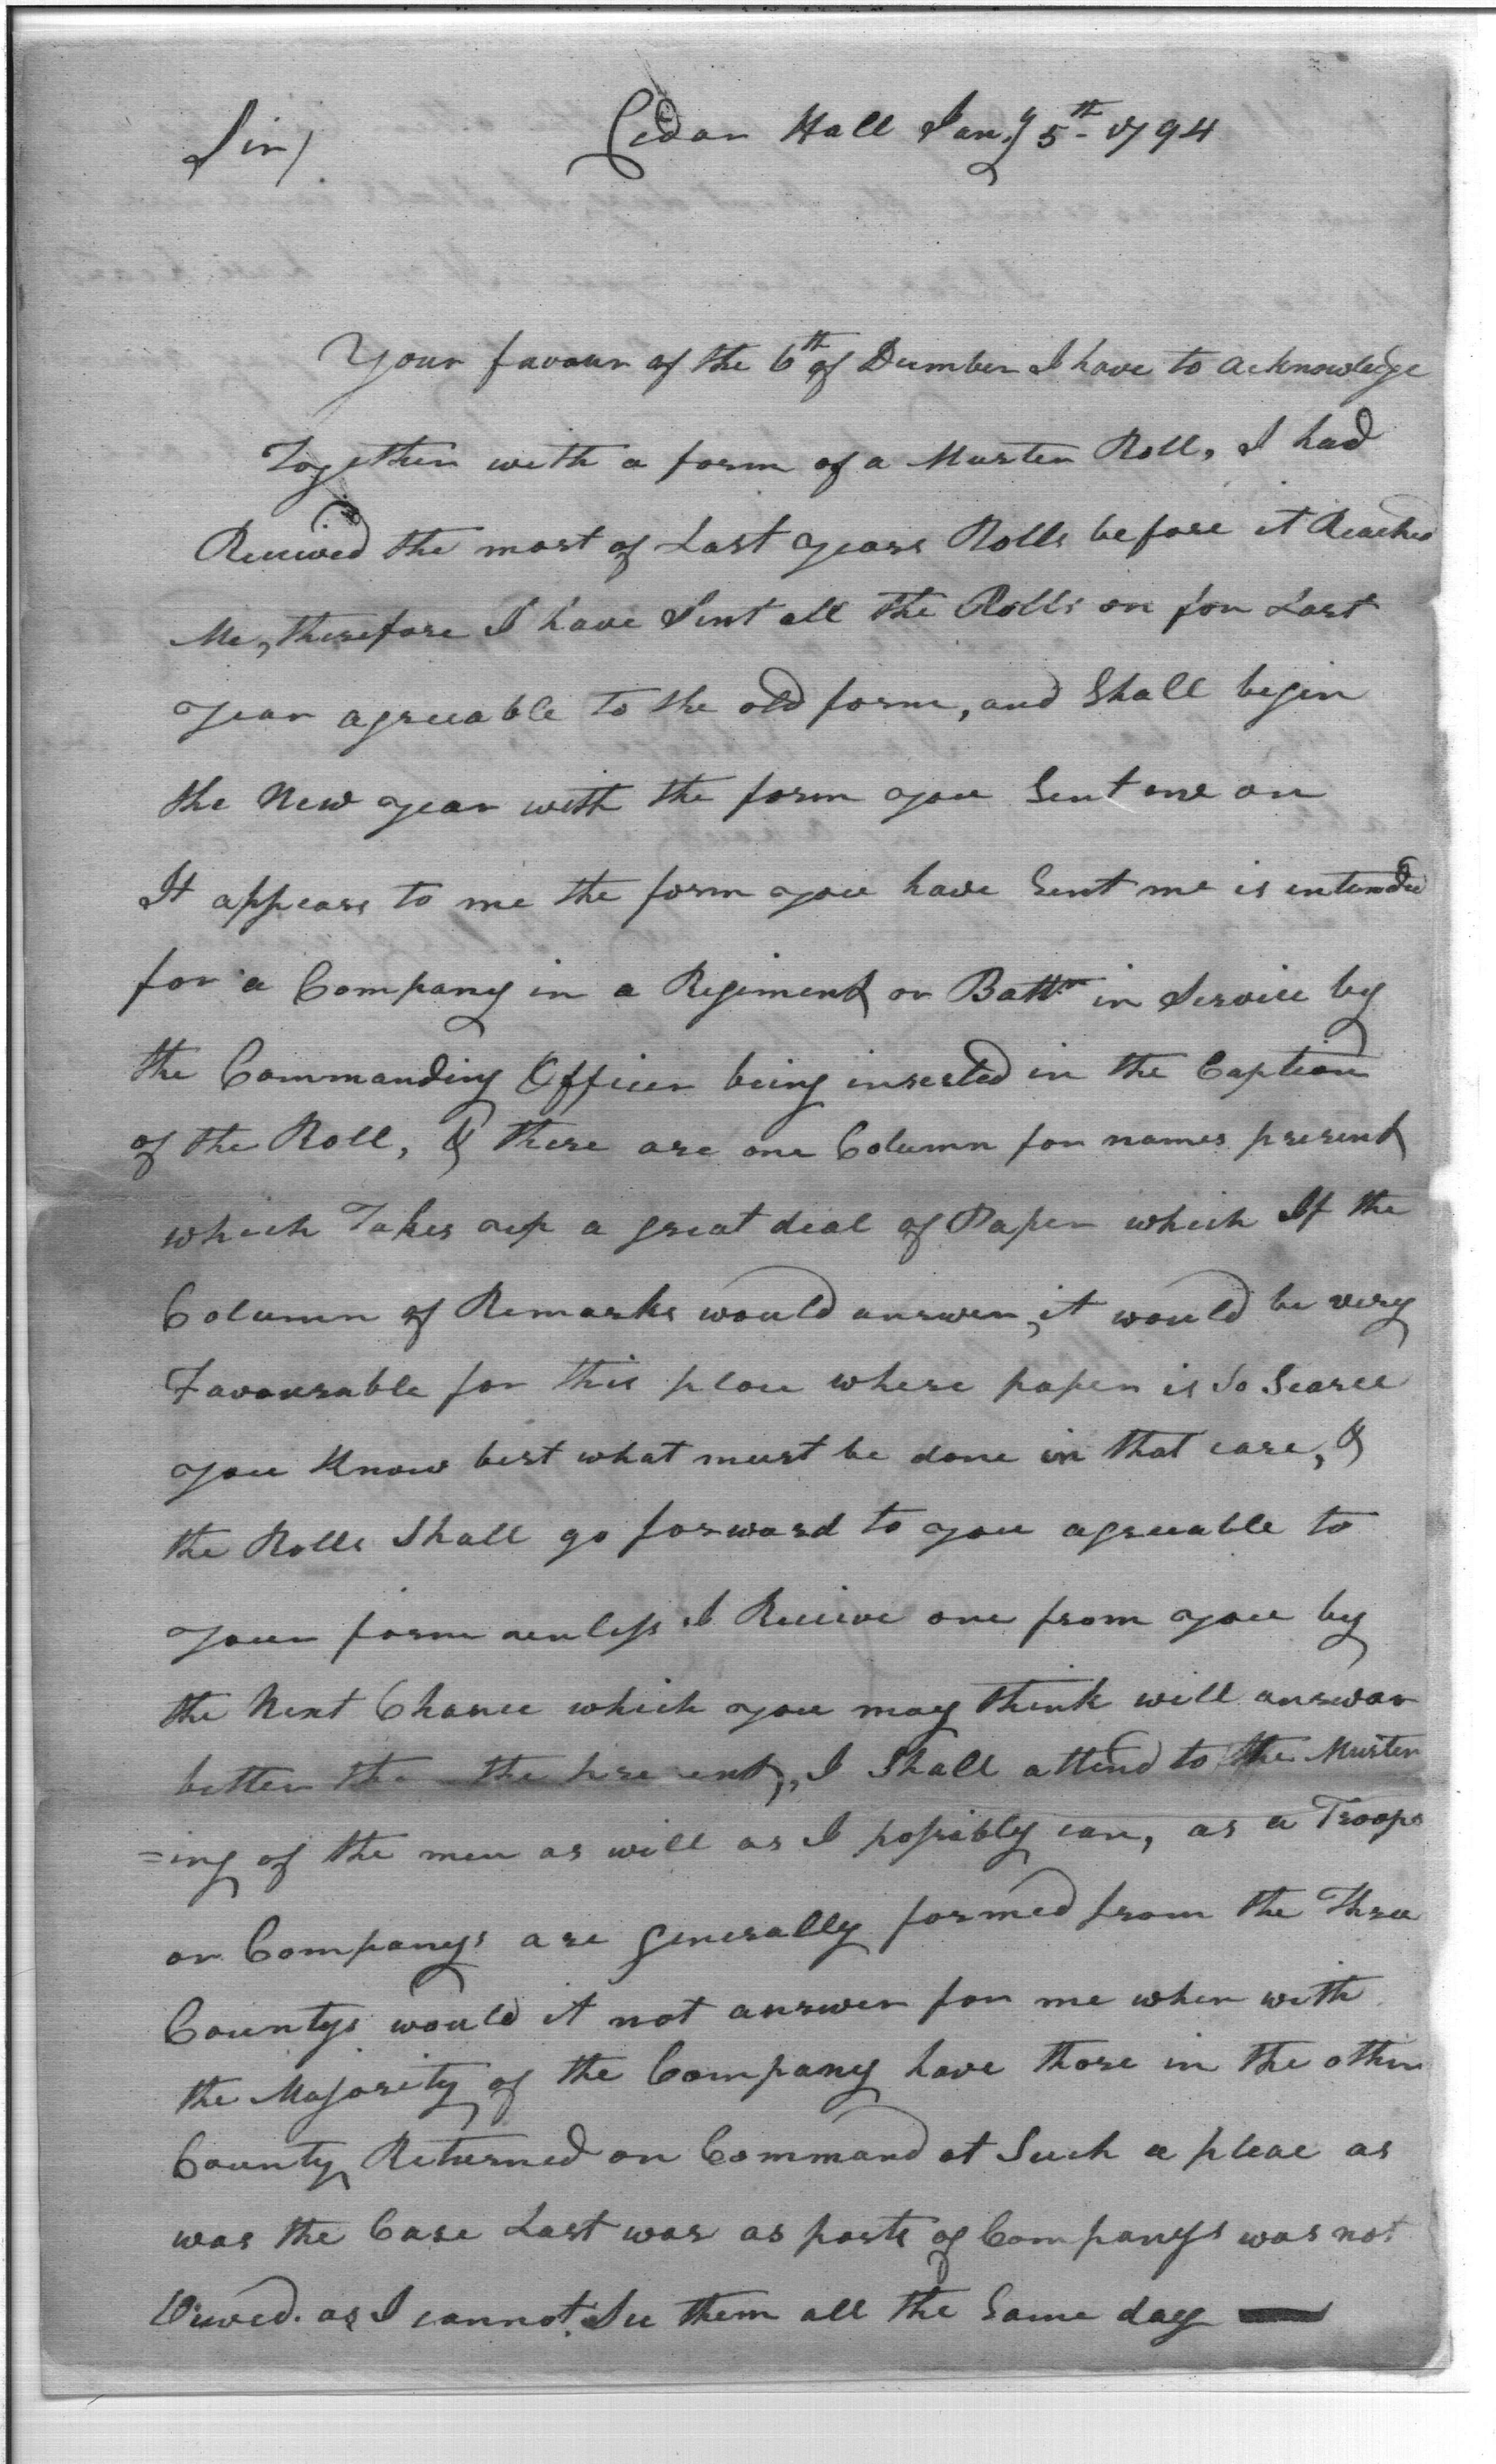 Sir/ Cedar Hall Jany 5th 1794
Your favour of the 6th of December I have to acknowledge
Together with a form of a Muster Roll, I had
Received the most of Last years Rolls before it Reached
Me, therefore I have Sent all the Rolls on for Last
year agreeable to the old form, and Shall begin
the New year with the form you Sent me on
It appears to me the form you have Sent me is intended
for a Company in a Regiment or Battn in Service by
the Commanding Officer being inserted in the Caption
of the Roll, & there are one Column for names present
which Takes up a great deal of Paper which If the
Column of Remarks would answer, it would be very
Favourable for this place where paper is So Scarce
you Know best what must be done in that case, &
the Rolls Shall go forward to you agreeable to
your form unless I Receive one from you by
the Next Chance which you may think will answar
better the the present, I Shall attend to the Muster
=ing of the men as will as I possibly can, as a Troops
or Companys are generally formed from the Three
Countys would it not answer for me when with
the Majority of the Company have those in the other
County Returned on Command at Such a place as
was the Case Last war as parts of Companys was not
Viewed. as I cannot See them all the Same day